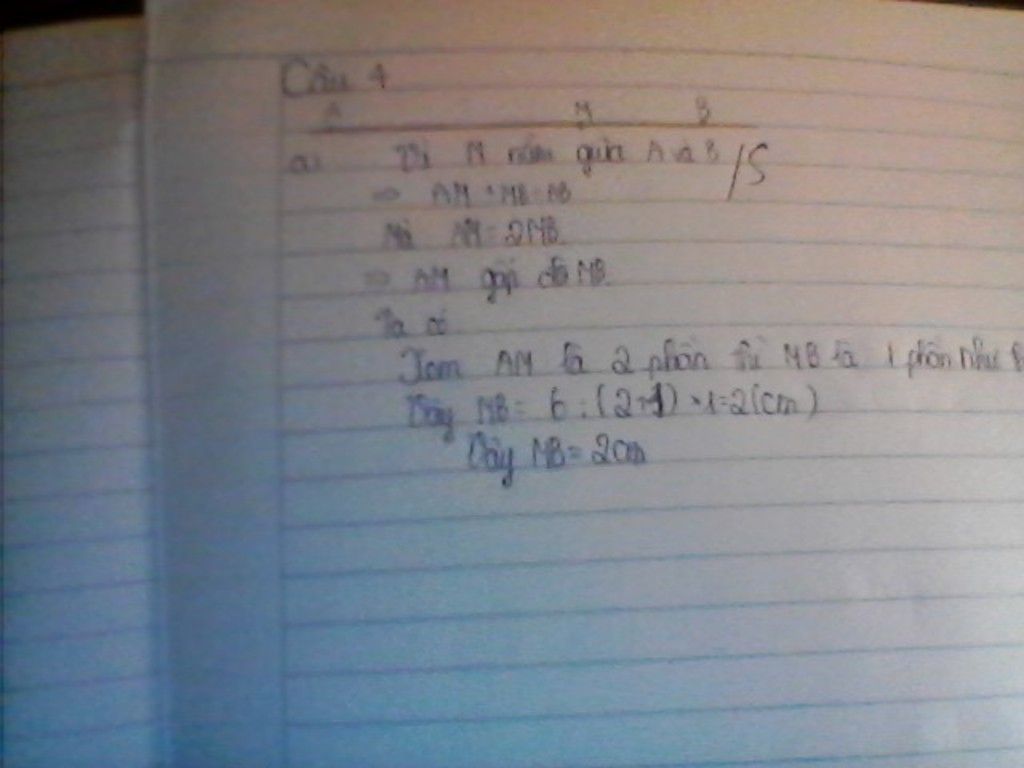 Câu 4
A M B
a) Vì M nằm giữa A và B /S
=> AM + MB = AB
Mà AM = 2MB
=> AM gấp đôi MB.
Ta có
Xem AM là 2 phần thì MB là 1 phần như
Vậy MB = 6 : (2+1) × 1 = 2 (cm)
Vậy MB = 2cm